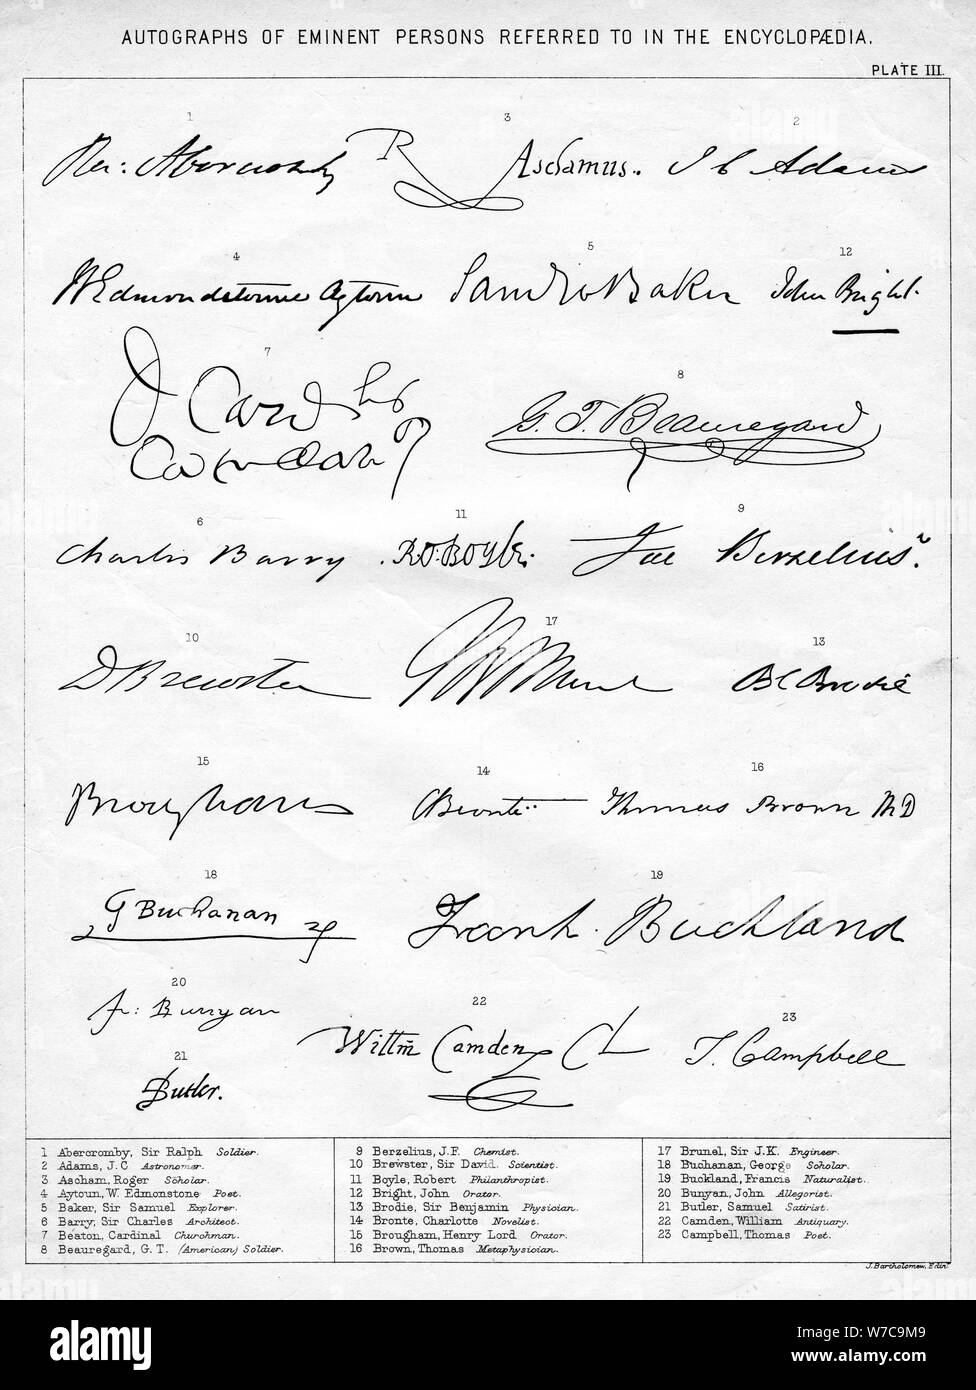 AUTOGRAPHS OF EMINENT PERSONS REFERRED TO IN THE ENCYCLOPÆDIA.
PLATE III.
1 3 2
Ra: Abercromby R Aschamus.. J C Adams
4 5 12
W Edmondstoune Aytoun Saml W Baker John Bright.
7 8
J Card
G. T. Beauregard
6 11 9
Charles Barry . Ro: Boyle. Jac Berzelius.
10 17 13
D Brewster B C Brodie
15 14 16
Brougham CBrontë Thomas Brown MD
18 19
G Buchanan Frank. Buckland
20 22 23
Jo: Bunyan Willm Camden Cl T. Campbell
21
Butler.
1 Abercromby, Sir Ralph Soldier.
2 Adams, J.C Astronomer.
3 Ascham, Roger Scholar.
4 Aytoun, W. Edmonstone Poet.
5 Baker, Sir Samuel Explorer.
6 Barry, Sir Charles Architect.
7 Beaton, Cardinal Churchman.
8 Beauregard, G. T. (American) Soldier.
9 Berzelius, J.F. Chemist.
10 Brewster, Sir David. Scientist.
11 Boyle, Robert Philanthropist.
12 Bright, John Orator.
13 Brodie, Sir Benjamin Physician.
14 Bronte, Charlotte Novelist.
15 Brougham, Henry Lord Orator.
16 Brown, Thomas Metaphysician.
17 Brunel, Sir J.K. Engineer.
18 Buchanan, George Scholar.
19 Buckland, Francis Naturalist.
20 Bunyan, John Allegorist.
21 Butler, Samuel Satirist.
22 Camden, William Antiquary.
23 Campbell, Thomas Poet.
J. Bartholomew, Edinr
alamy
Image ID: W7C9M9
www.alamy.com